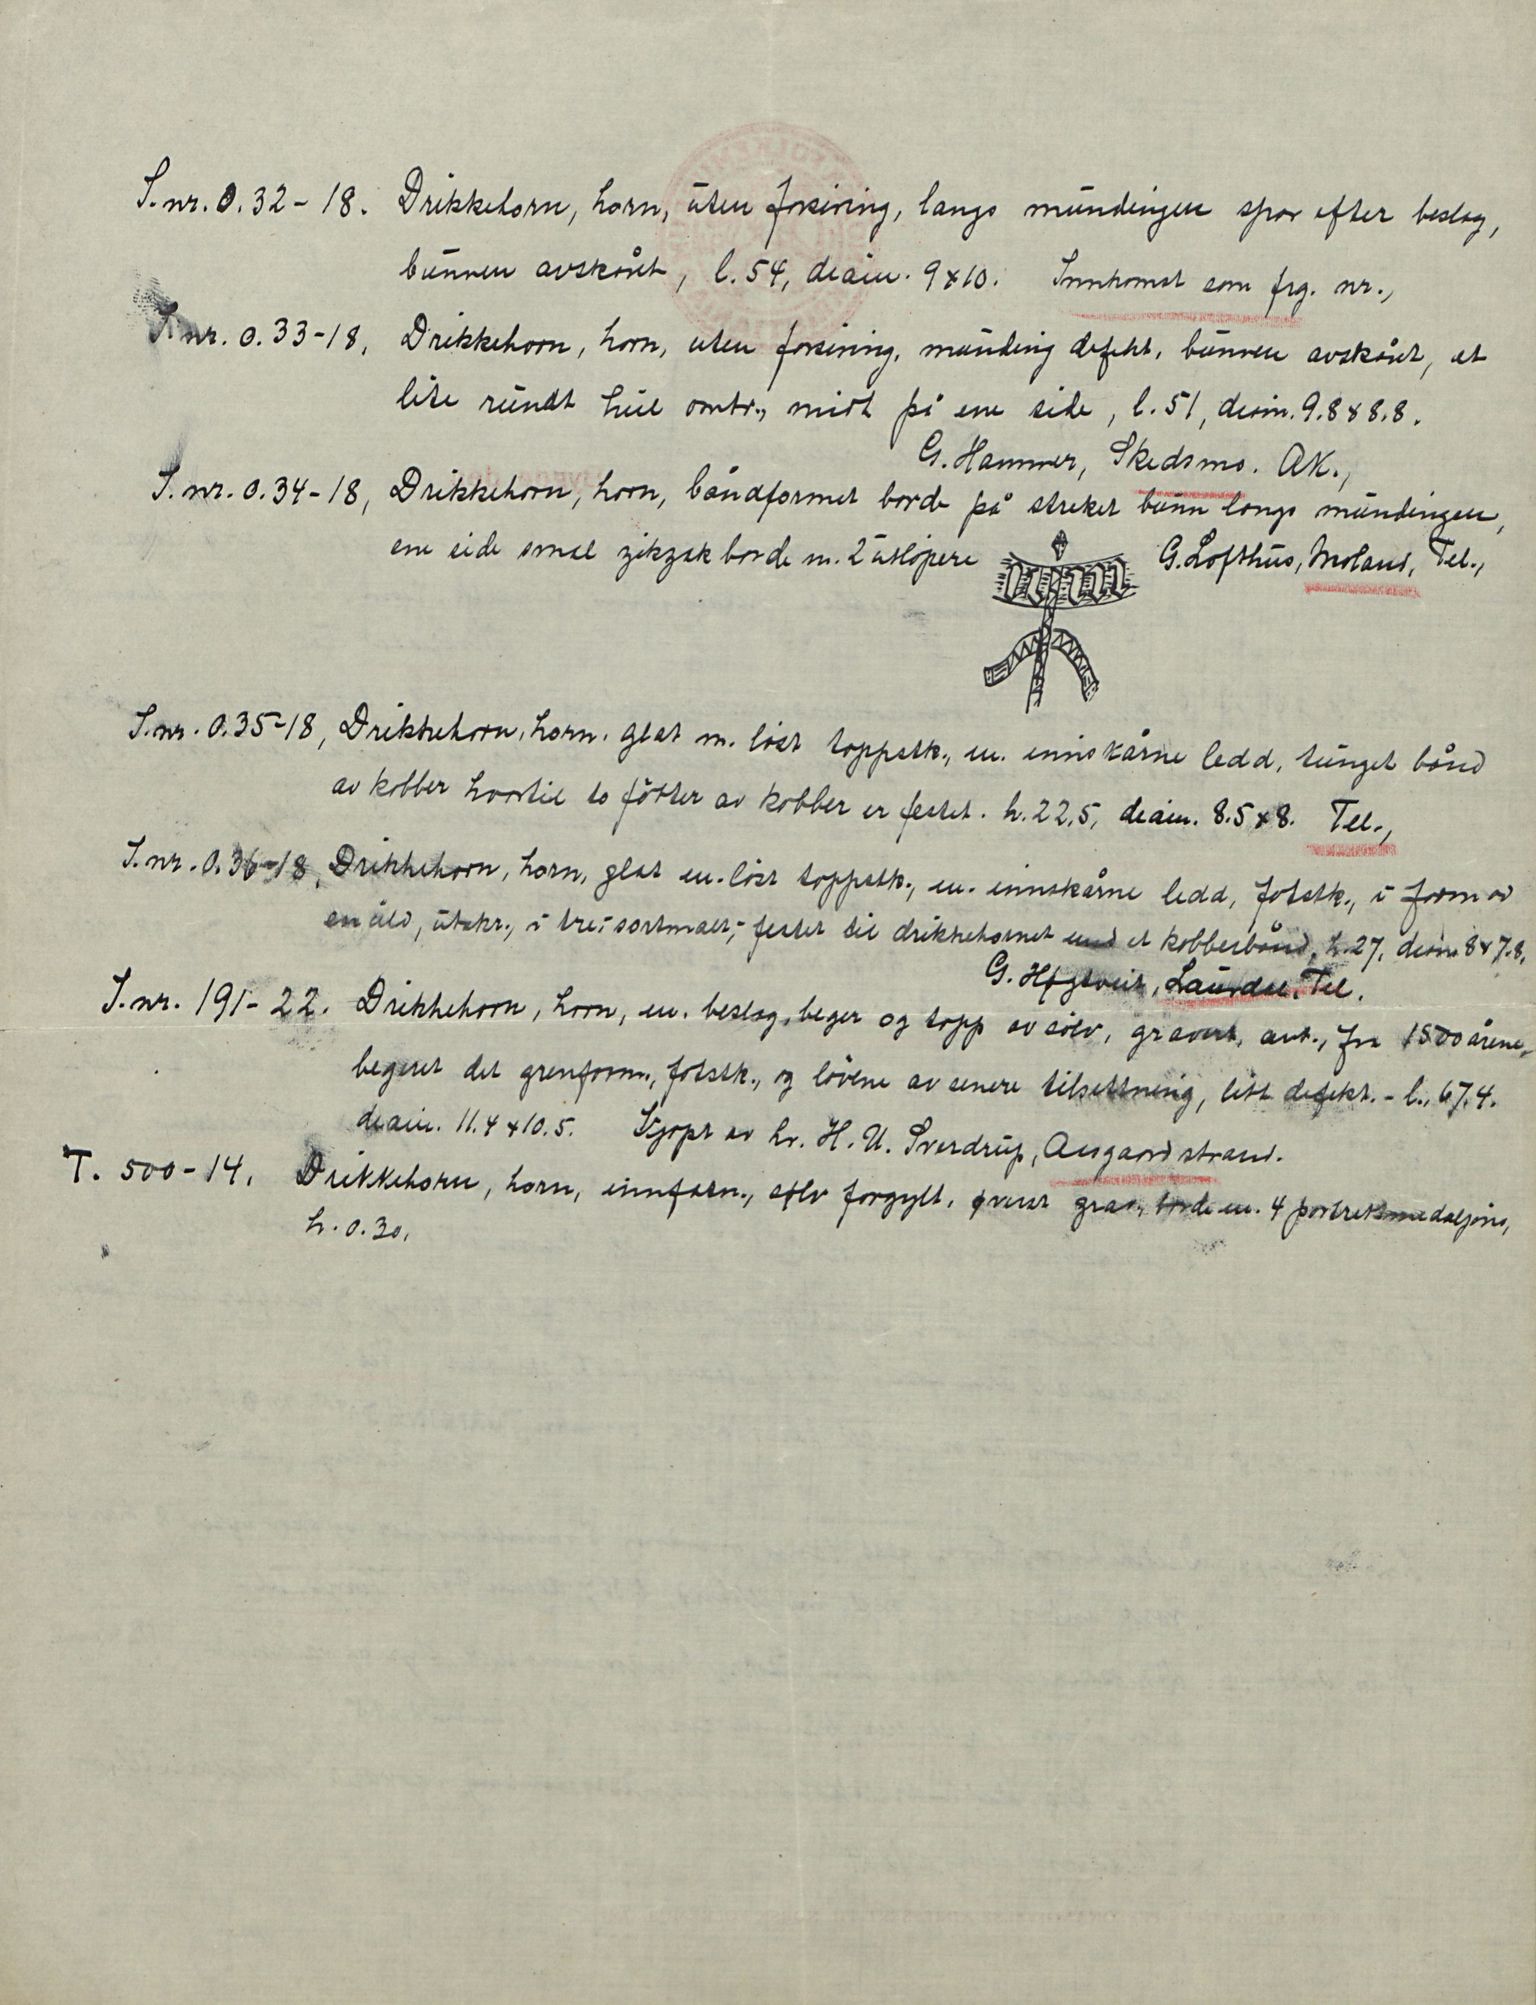 S.nr. O.32-18. Drikkehorn, horn, uten forsiring, langs mundingen spor efter beslag,
bunnen avskåret, l. 54, diam. 9x10. Innkomst som frg. nr.,
S.nr. O.33-18, Drikkehorn, horn, uten forsiring, munding defekt, bunnen avskåret, et
lite rundt hul omtr., midt på ene side, l. 51, diam. 9.8x8.8.
G. Hammer, Skedsmo. AK.,
S.nr. O.34-18, Drikkehorn, horn, båndformet borde på streket bunn langs mundingen,
ene side smal zikzakborde m. 2 utløpere G. Lofthus, Moland, Tel.,
S.nr. O.35-18, Drikkehorn, horn, glat m. löst toppstk., m. innskårne ledd, tunget bånd
av kobber hvortil to fötter av kobber er festet. h. 22.5, diam. 8.5x8. Tel.,
S.nr. O.36-18, Drikkehorn, horn, glat m. löst toppstk., m. innskårne ledd, fotstk., i form av
en , utskr., i tre, sortmalt, festet til drikkehornet med et kobberbånd, h. 27, diam. 8x7.8,
G. Høgtveit, Laurdal, Tel.
S.nr. 191-22. Drikkehorn, horn, m. beslag, beger og topp av sölv, gravert, ant., fra 1500 årene,
begeret det grenform., fotstk., og lövene av senere tilsettning, litt defekt. - l., 67.4.
diam. 11.4x10.5. Kjøpt av hr. H. U. Sverdrup, Aasgaardstrand.
T. 500-14. Drikkehorn, horn, innfatn., sølv forgylt, øverst grav., borde m. 4 portretmedaljons,
h. 0.30.